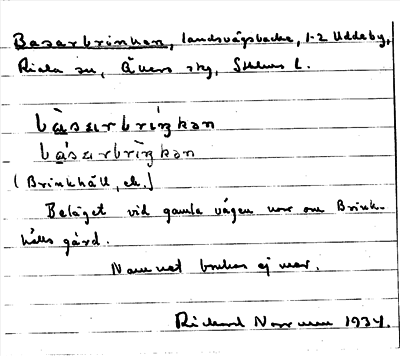 Basarbrinken, landsvägsbacke, 1-2 Uddeby,
Riala sn, Åkers skg, Sthlms l.
bàsarbríŋkən
básarbrìŋkən
(Brinkhäll, ek.)
Beläget vid gamla vägen norr om Brink-
hälls gård.
Namnet brukas ej mer.
Rickard Norrman 1934.